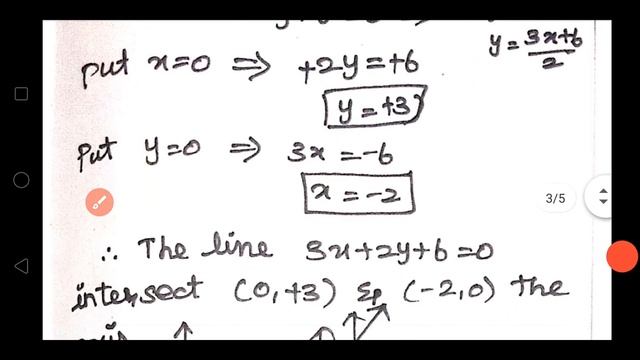 put x=0 ⇒ +2y=+6
y=3x+6/2
y=+3
put y=0 ⇒ 3x=-6
x=-2
3/5
∴ The line 3x+2y+6=0
intersect (0,+3) & (-2,0) the